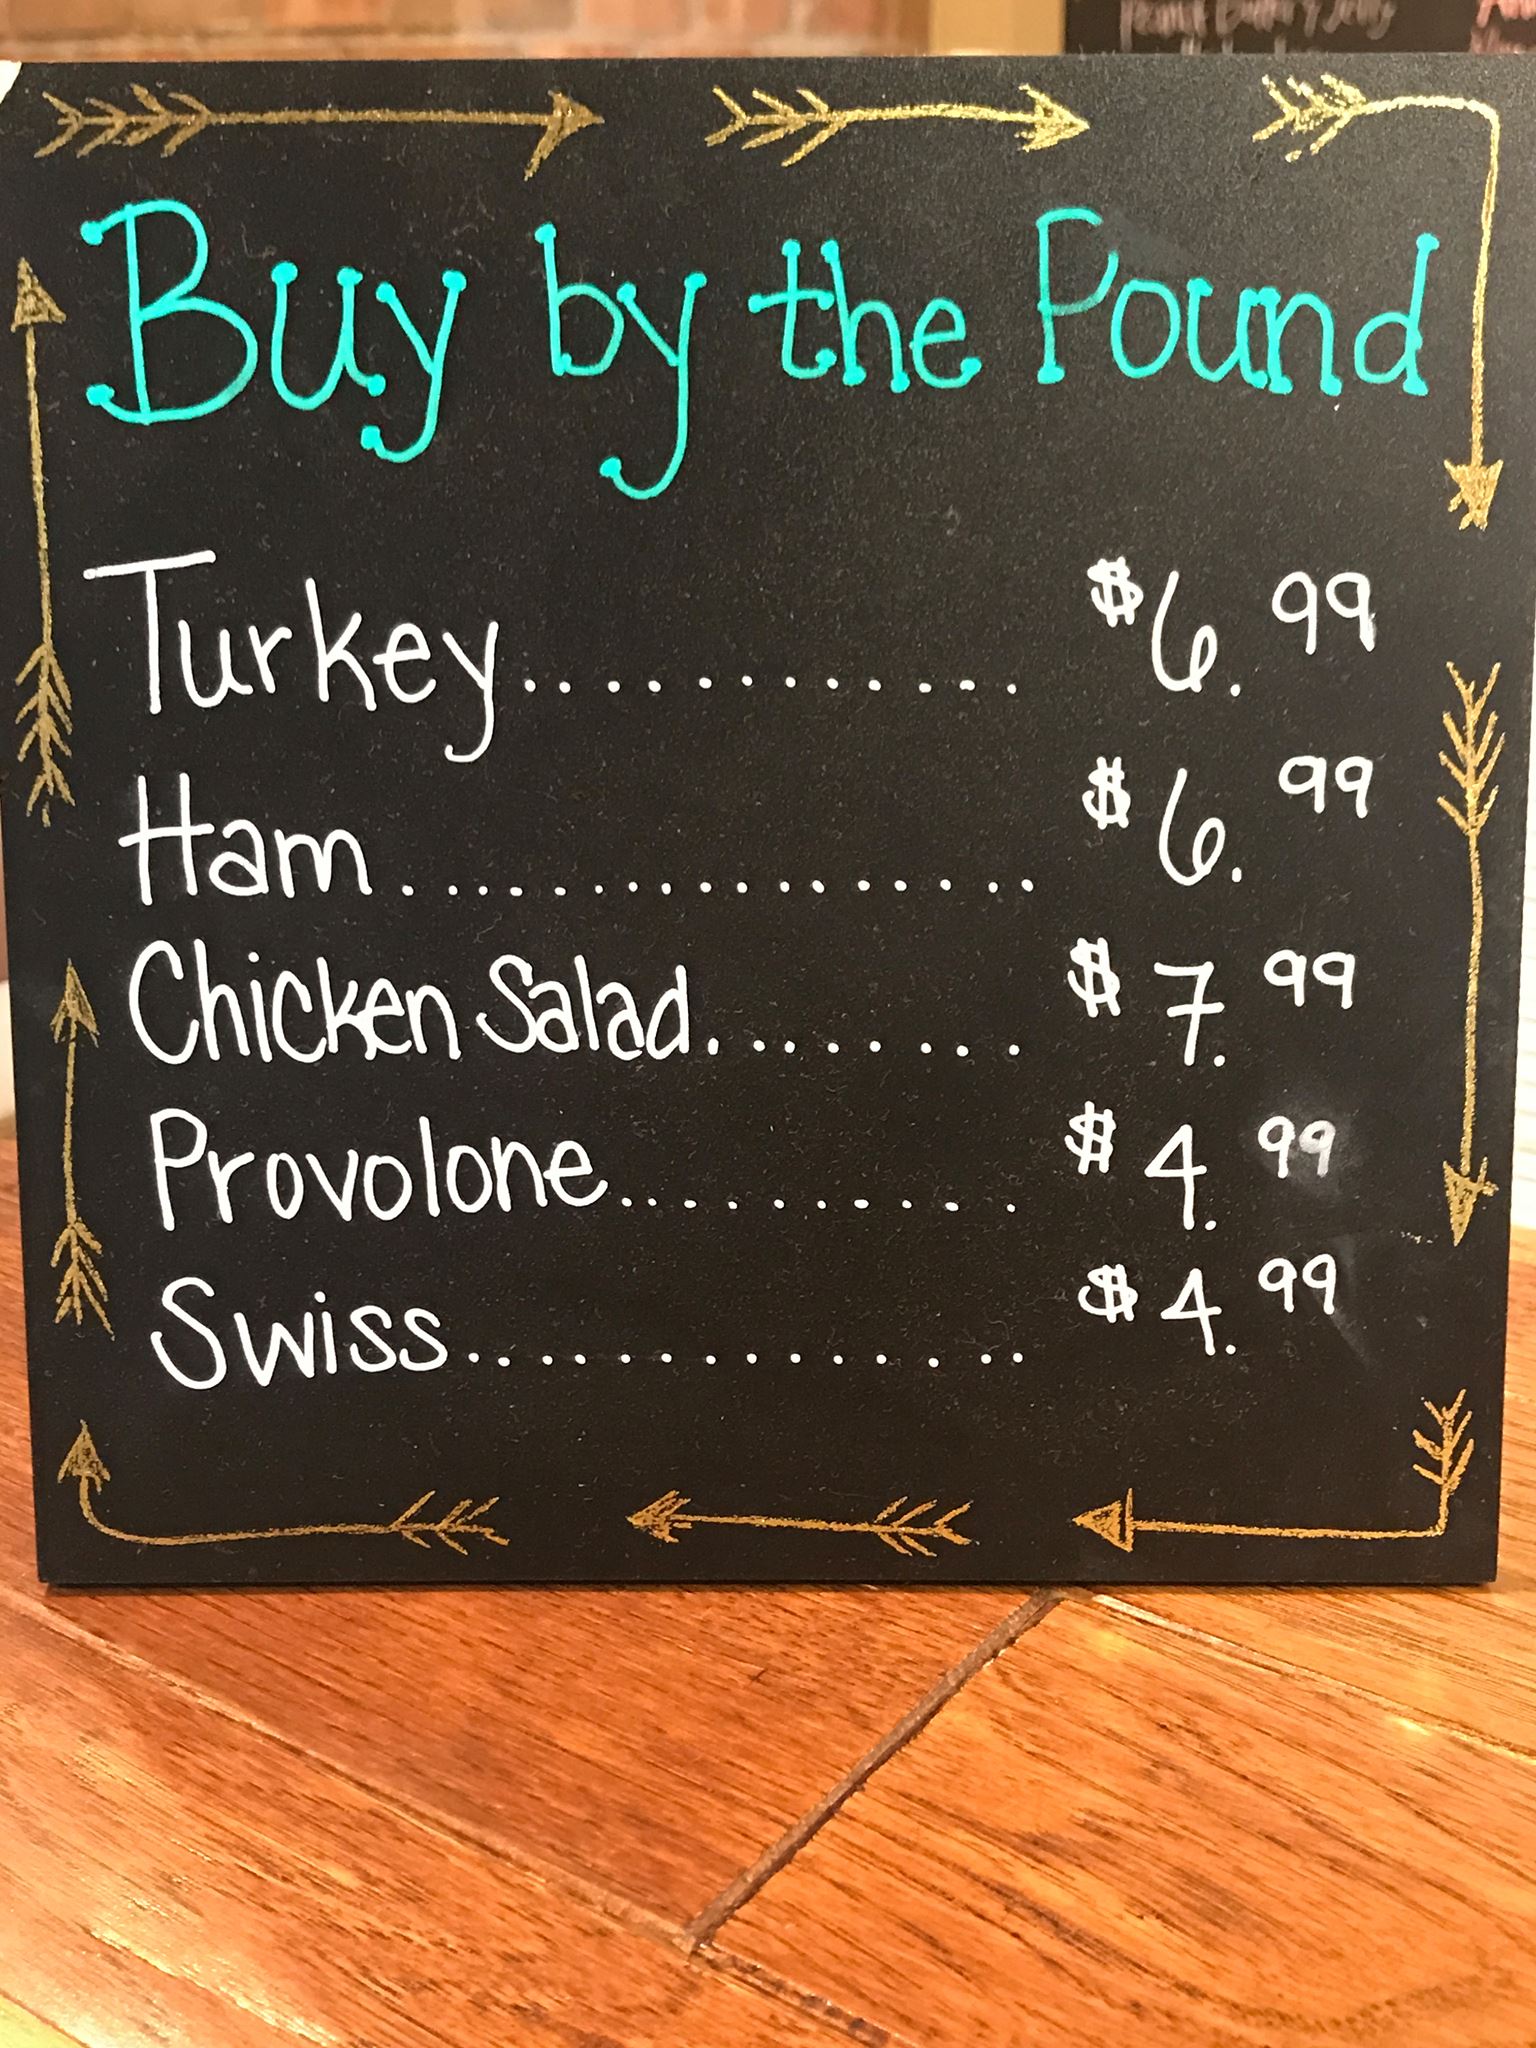 Peanut Butter & Jelly
Buy by the Pound
Turkey............. $6.99
Ham................. $6.99
Chicken Salad........ $7.99
Provolone........... $4.99
Swiss.............. $4.99